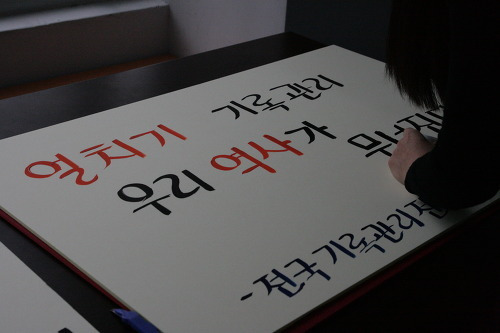 얼치기 기록관리
우리 역사가 무너
- 전국 기록관리전